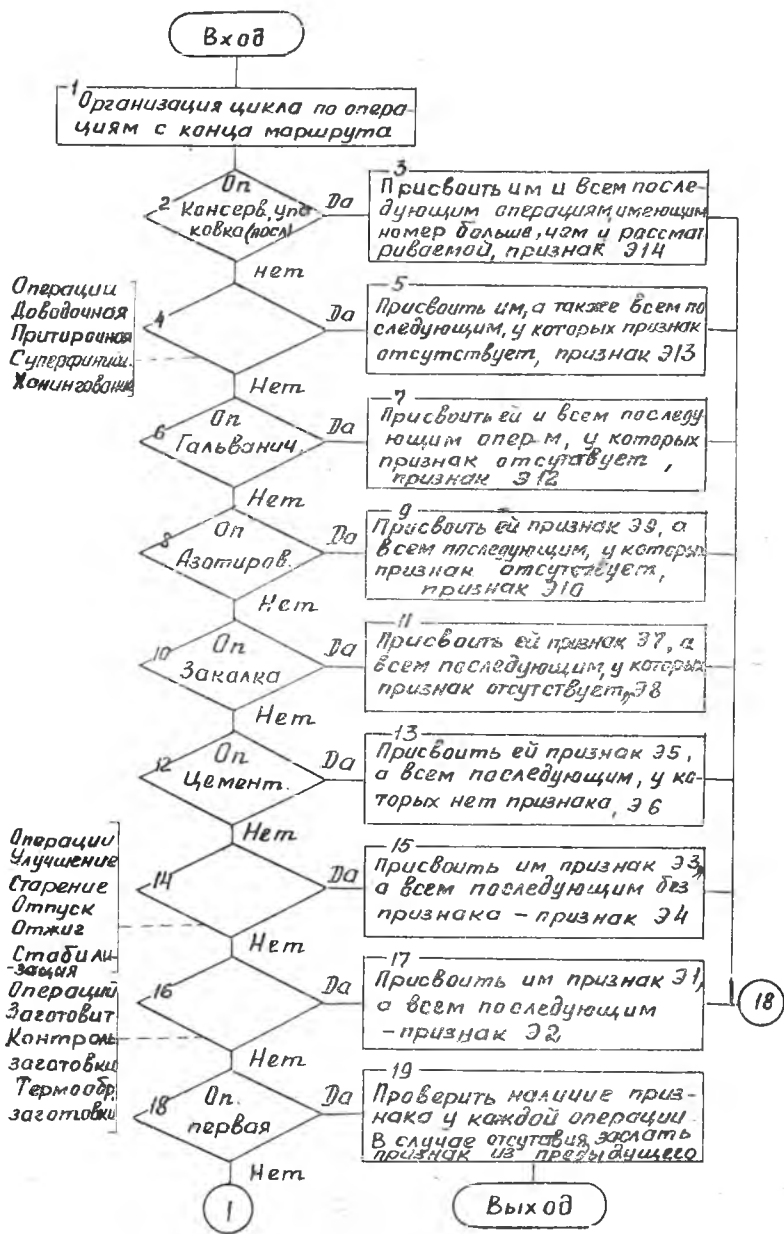 Вход
1
Организация цикла по опера-
циям с конца маршрута
2
Оп
Консерв, упа
ковка (посл)
Да
нет
3
Присвоить им и всем после-
дующим операциям, имеющим
номер больше, чем и рассмат
риваемой, признак Э14
Операции
Доводочная
Притирочная
Суперфиниш.
Хонингование
4
Да
Нет
5
Присвоить им, а также всем по
следующим, у которых признак
отсутствует, признак Э13
6
Оп
Гальванич.
Да
Нет
7
Присвоить ей и всем последу
ющим опер-м, у которых
признак отсутавует,
признак Э12
8
Оп
Азотиров.
Да
Нет
9
Присвоить ей признак Э9, а
всем последующим, у которых
признак отсутствует,
признак Э10
10
Оп
Закалка
Да
Нет
11
Присвоить ей признак Э7, а
всем последующим, у которых
признак отсутствует, Э8
12
Оп
Цемент.
Да
Нет
13
Присвоить ей признак Э5,
а всем последующим, у ко-
торых нет признака, Э6
Операции
Улучшение
Старение
Отпуск
Отжиг
Стабили-
-зация
14
Да
Нет
15
Присвоить им признак Э3,
а всем последующим без
признака - признак Э4
Операций
Заготовит
Контроль
заготовки
Термообр.
заготовки
16
Да
Нет
17
Присвоить им признак Э1,
а всем последующим
-признак Э2
18
18
Оп.
первая
Да
Нет
19
Проверить наличие приз-
нака у каждой операции
В случае отсутавия, заслать
признак из предыдущего
1
Выход